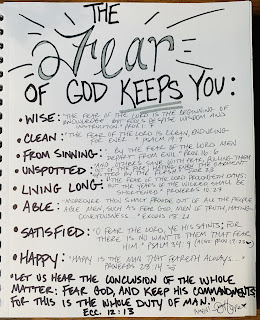 THE
Fear
OF GOD KEEPS YOU:
• WISE: "THE FEAR OF THE LORD IS THE BEGINNING OF
KNOWLEDGE: BUT FOOLS DESPISE WISDOM AND
INSTRUCTION." PROV. 1:7
• CLEAN: "THE FEAR OF THE LORD IS CLEAN, ENDURING
FOR EVER" PSALM 19:9
• FROM SINNING: "...BY THE FEAR OF THE LORD MEN
DEPART FROM EVIL." PROV. 16:6
• UNSPOTTED: "AND OTHERS SAVE WITH FEAR, PULLING THEM
OUT OF THE FIRE; HATING EVEN THE GARMENT
SPOTTED BY THE FLESH." JUDE 23
• LIVING LONG: "THE FEAR OF THE LORD PROLONGETH DAYS:
BUT THE YEARS OF THE WICKED SHALL BE
SHORTENED." PROVERBS 10:27
• ABLE: "MOREOVER THOU SHALT PROVIDE OUT OF ALL THE PEOPLE
ABLE MEN, SUCH AS FEAR GOD, MEN OF TRUTH, HATING
COVETOUSNESS..." EXODUS 18:21
• SATISFIED: "O FEAR THE LORD, YE HIS SAINTS: FOR
THERE IS NO WANT TO THEM THAT FEAR
HIM." PSALM 34:9 (ALSO PROV. 19:23)
• HAPPY: "HAPPY IS THE MAN THAT FEARETH ALWAYS..."
PROVERBS 28:14
"LET US HEAR THE CONCLUSION OF THE WHOLE
MATTER: FEAR GOD, AND KEEP HIS COMMANDMENTS:
FOR THIS IS THE WHOLE DUTY OF MAN."
ECC. 12:13